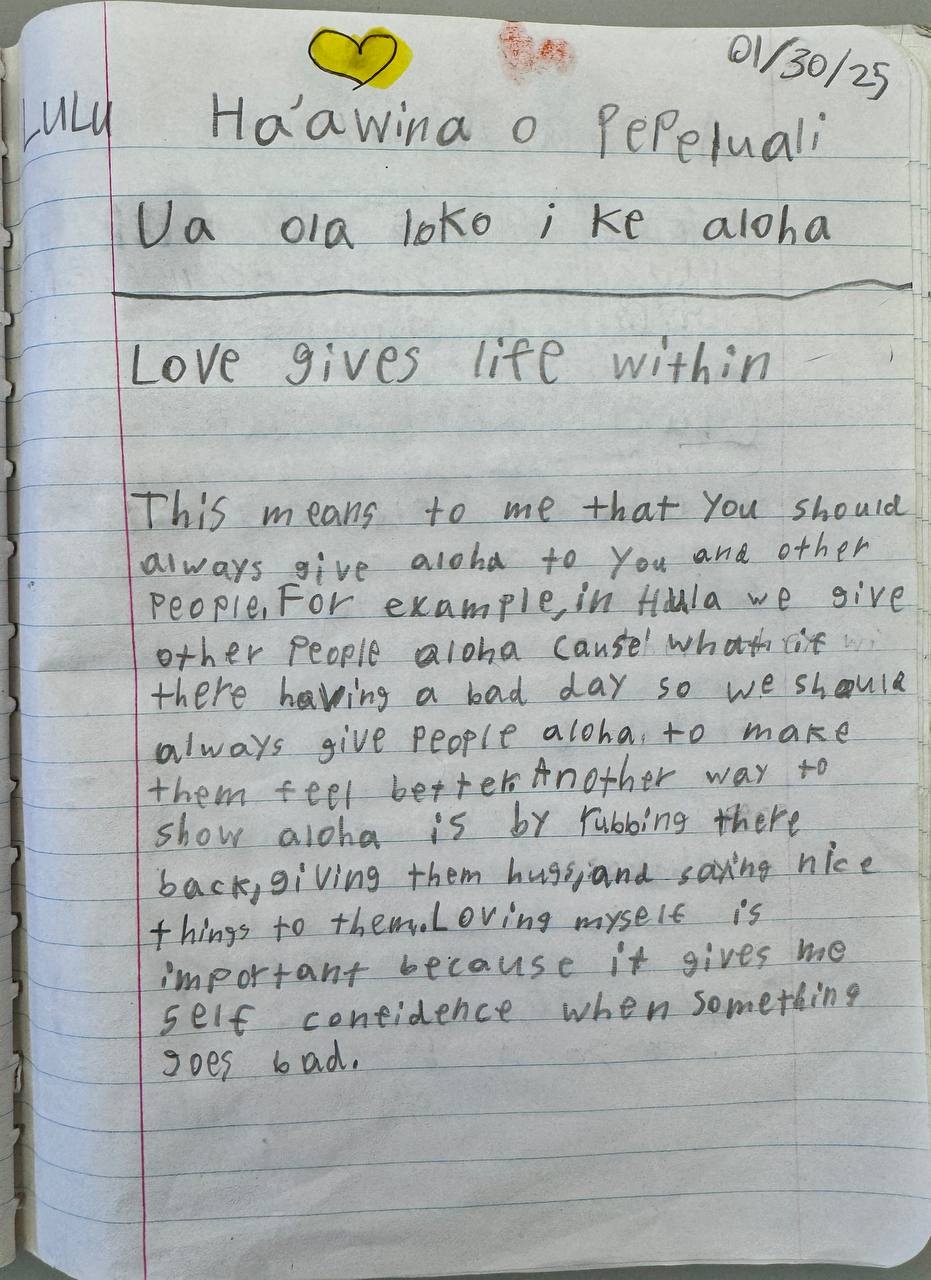 01/30/25
LULU Ha'awina o Pepeluali
Ua ola loko i ke aloha
Love gives life within
This means to me that you should
always give aloha to you and other
people. For example, in Hula we give
other people aloha cause' what if
there having a bad day so we should
always give people aloha. to make
them feel better. Another way to
show aloha is by rubbing there
back, giving them hugs, and saying nice
things to them. Loving myself is
important because it gives me
self confidence when something
goes bad.